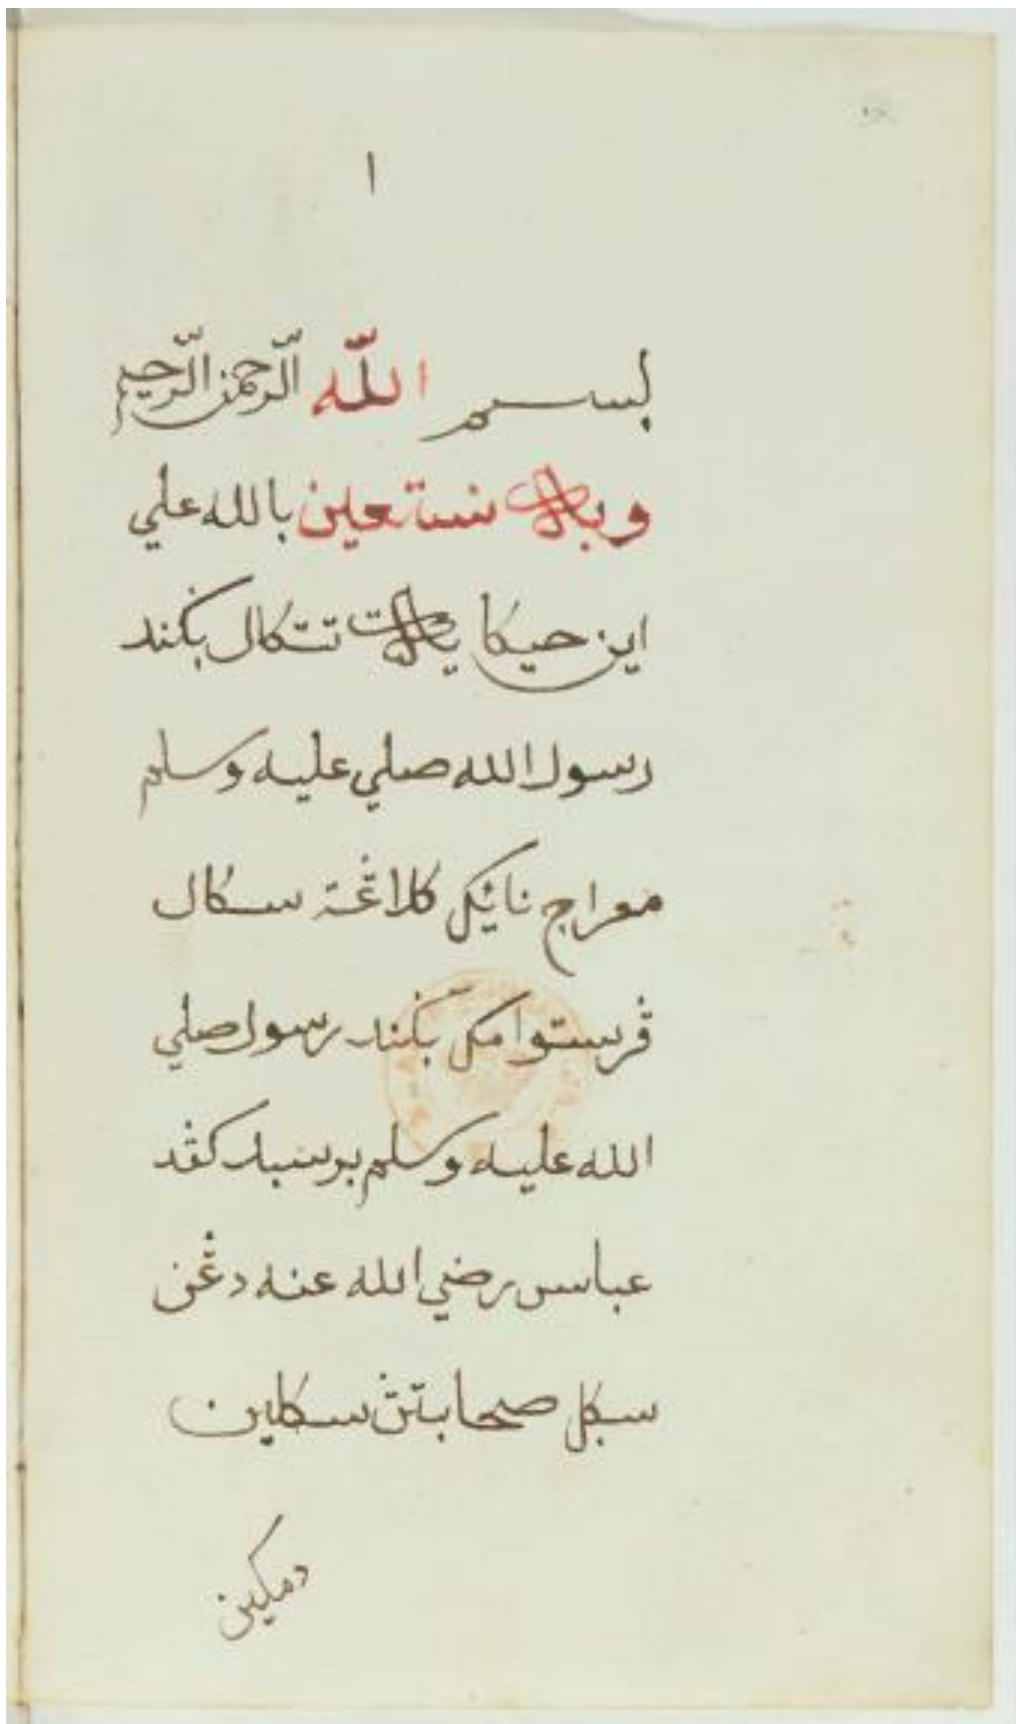 ١
بسم الله الرحمن الرحيم
وبه نستعين بالله علي
اين حيكاية تتكال بكند
رسول الله صلي عليه وسلم
معراج نايك كلاڠة سكال
ڤرستوا مك بكند رسول صلي
الله عليه وسلم برسبد كڤد
عباس رضي الله عنه دڠن
سكل صحابتڽ سكلين
دمكين